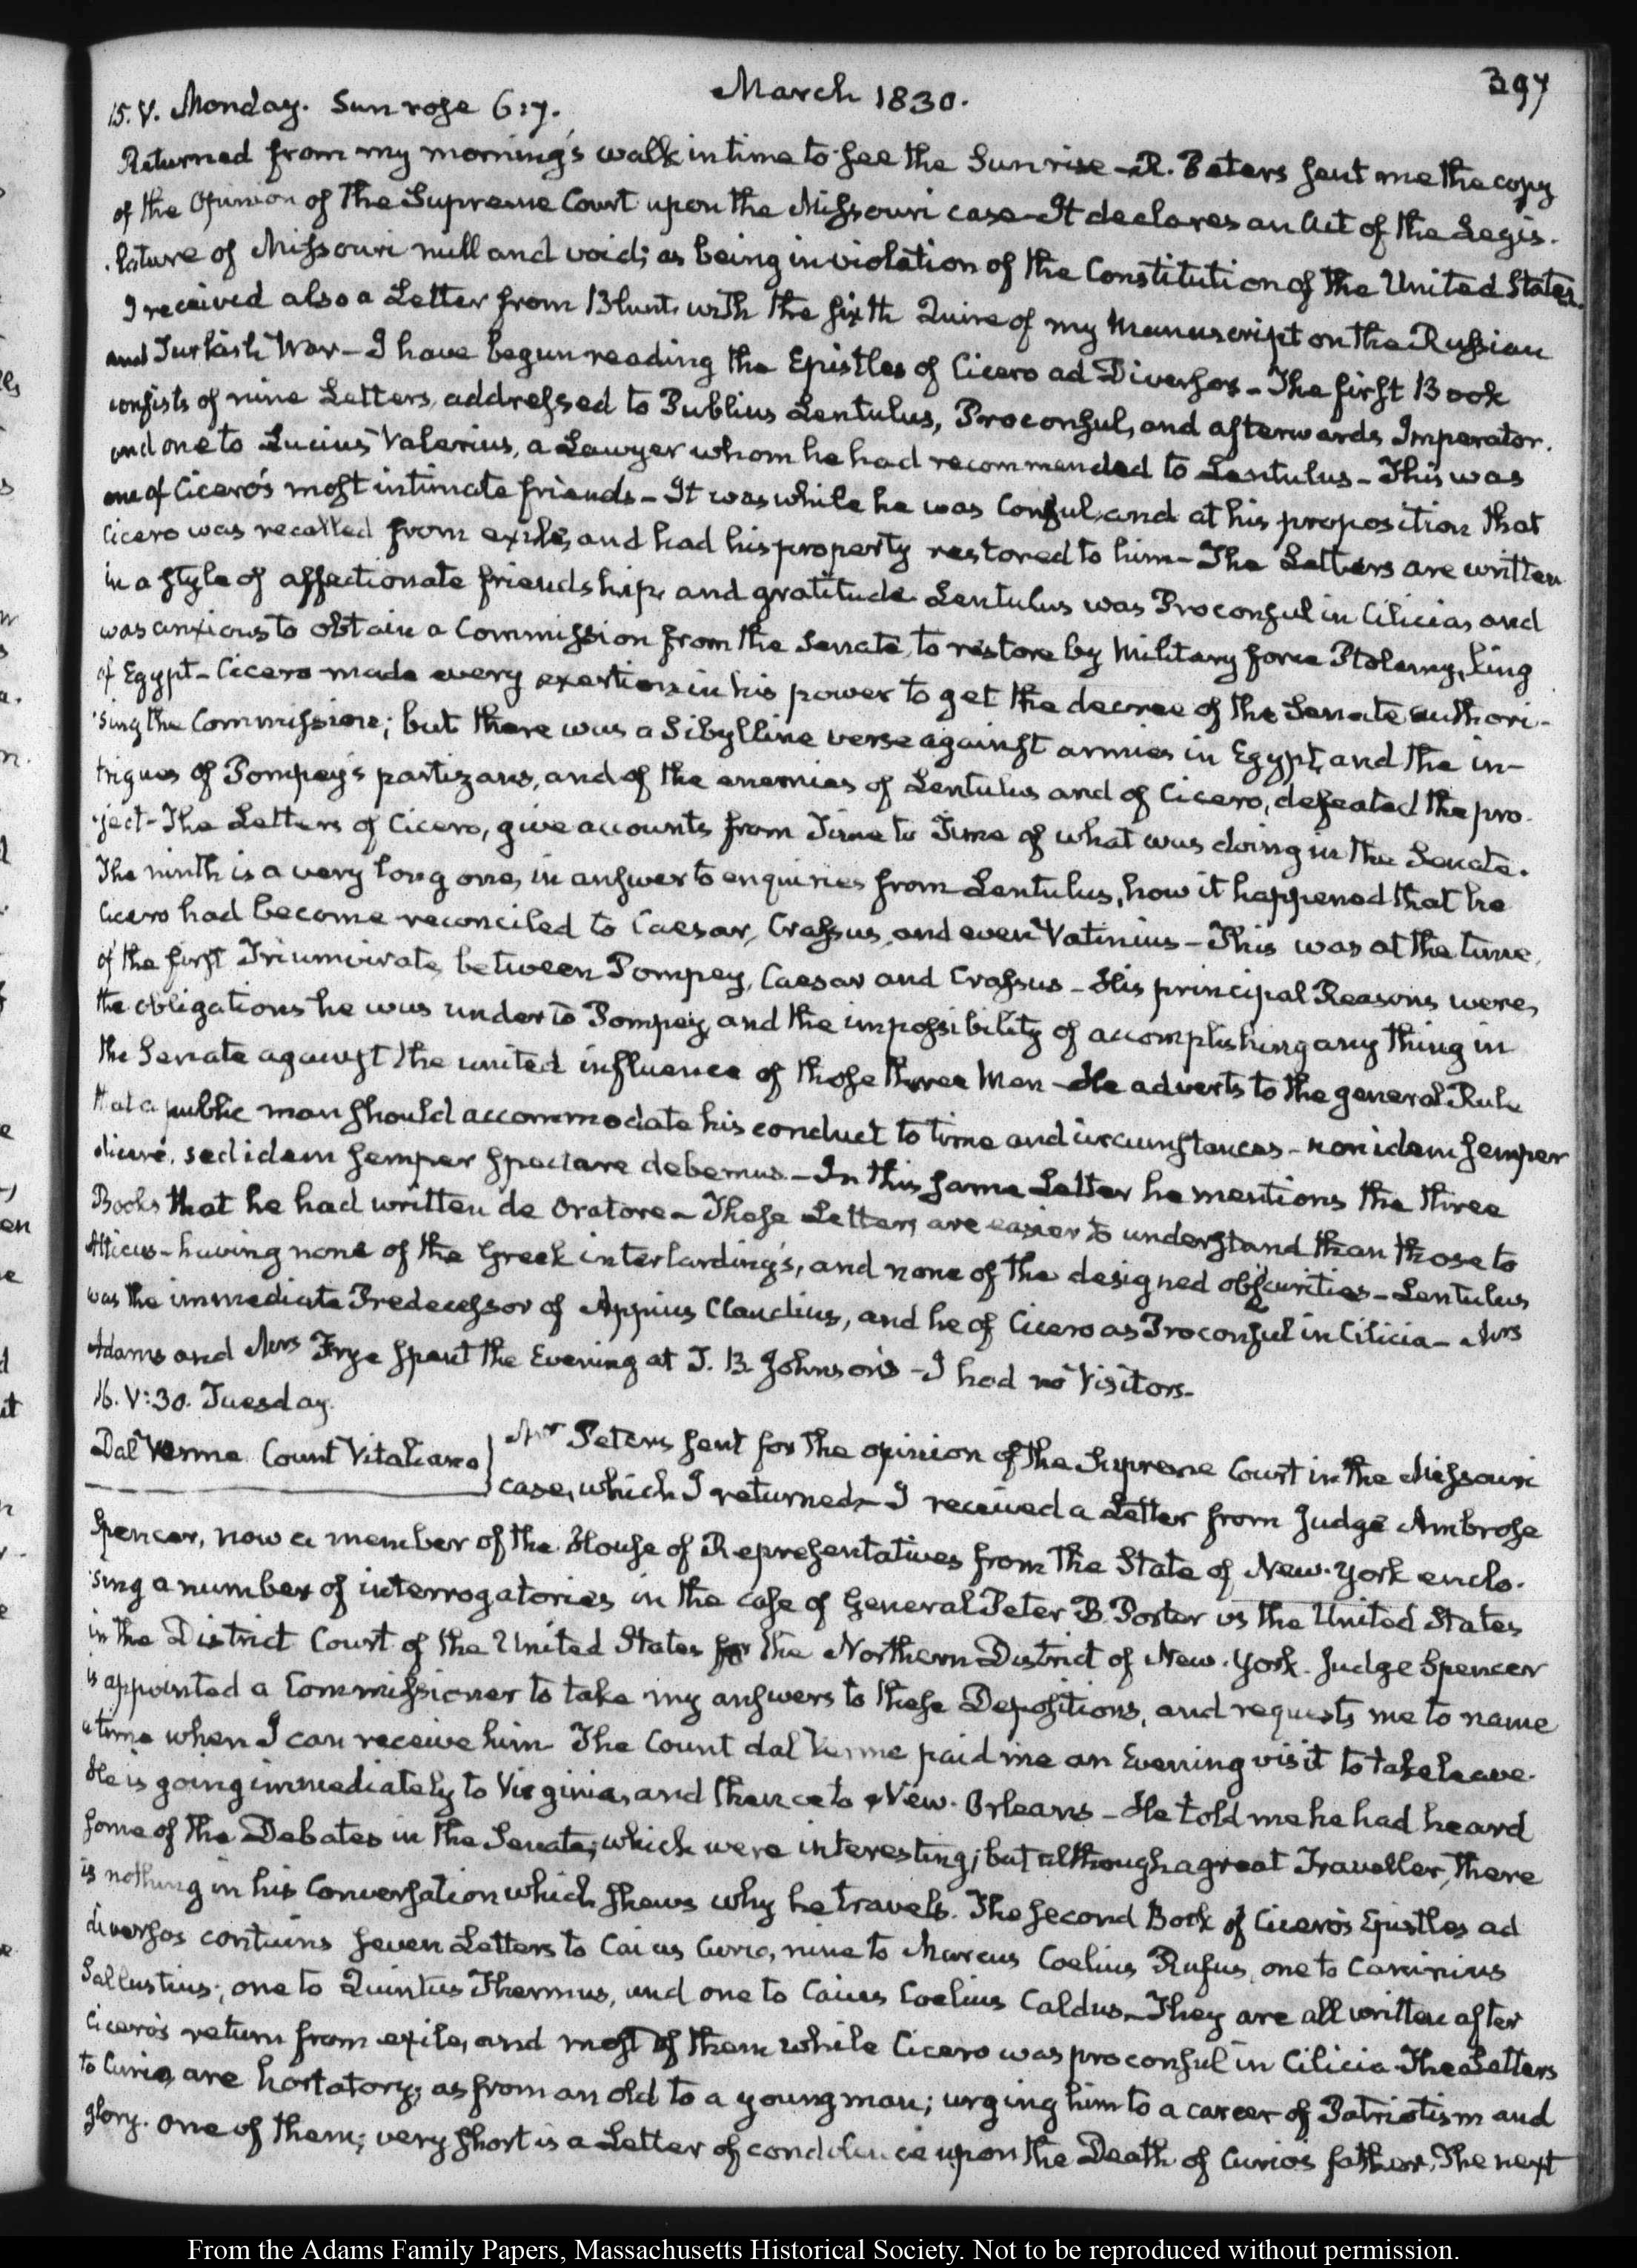 March 1830.
397
15. V. Monday. Sun rose 6:7.
Returned from my morning's walk in time to see the Sun rise – R. Peters sent me the copy
of the Opinion of the Supreme Court upon the Missouri case – It declares an Act of the Legis-
-lature of Missouri null and void; as being in violation of the Constitution of the United States.
I received also a Letter from Blunt, with the sixth Quire of my Manuscript on the Russian
and Turkish War – I have begun reading the Epistles of Cicero ad Diversos – The first Book
consists of nine Letters, addressed to Publius Lentulus, Proconsul, and afterwards Imperator.
and one to Lucius Valerius, a Lawyer whom he had recommended to Lentulus – This was
one of Cicero's most intimate friends – It was while he was Consul, and at his proposition that
Cicero was recalled from exile, and had his property restored to him – The Letters are written
in a style of affectionate friendship, and gratitude Lentulus was Proconsul in Cilicia, and
was anxious to obtain a Commission from the Senate, to restore by Military force Ptolemy, king
of Egypt – Cicero made every exertion in his power to get the decree of the Senate authori-
-sing the Commission; but there was a Sibylline verse against armies in Egypt, and the in-
trigues of Pompey's partizans, and of the enemies of Lentulus and of Cicero, defeated the pro-
-ject – The Letters of Cicero, give accounts from Time to Time of what was doing in the Senate.
The ninth is a very long one, in answer to enquiries from Lentulus, how it happened that he
Cicero had become reconciled to Caesar, Crassus, and even Vatinius – This was at the time,
of the first Triumvirate, between Pompey, Caesar and Crassus – His principal Reasons were,
the obligations he was under to Pompey, and the impossibility of accomplishing any thing in
the Senate against the united influence of those three Men – He adverts to the general Rule
that a public man should accommodate his conduct to time and circumstances – non idem semper
dicere, sed idem semper spectare debemus – In this same Letter he mentions the three
Books that he had written de Oratore – These Letters are easier to understand than those to
Atticus – having none of the Greek interlarding's, and none of the designed obscurities – Lentulus
was the immediate Predecessor of Appius Claudius, and he of Cicero as Proconsul in Cilicia – Mrs
Adams and Mrs Frye spent the Evening at T. B. Johnson's – I had no Visitors –
16. V:30. Tuesday.
Dal Verme Count Vitaliano
Mr Peters sent for the opinion of the Supreme Court in the Missouri
case, which I returned – I received a Letter from Judge Ambrose
Spencer, now a member of the House of Representatives from the State of New-York enclo-
-sing a number of interrogatories in the case of General Peter B. Porter vs the United States
in the District Court of the United States for the Northern District of New-York. Judge Spencer
is appointed a Commissioner to take my answers to these Depositions, and requests me to name
a time when I can receive him The Count dal Verme paid me an Evening visit to take leave.
He is going immediately to Virginia, and thence to New-Orleans – He told me he had heard
some of the Debates in the Senate; which were interesting; but although a great Traveller, there
is nothing in his Conversation which shews why he travels. The second Book of Cicero's Epistles ad
diversos contains seven Letters to Caius Curio, nine to Marcus Coelius Rufus, one to Caninius
Sallustius; one to Quintus Thermus, and one to Caius Coelius Caldus – They are all written after
Cicero's return from exile, and most of them while Cicero was proconsul in Cilicia – The Letters
to Curio, are hortatory; as from an old to a young man; urging him to a career of Patriotism and
glory. One of them; very short is a Letter of condolence upon the Death of Curio's father, The next
From the Adams Family Papers, Massachusetts Historical Society. Not to be reproduced without permission.